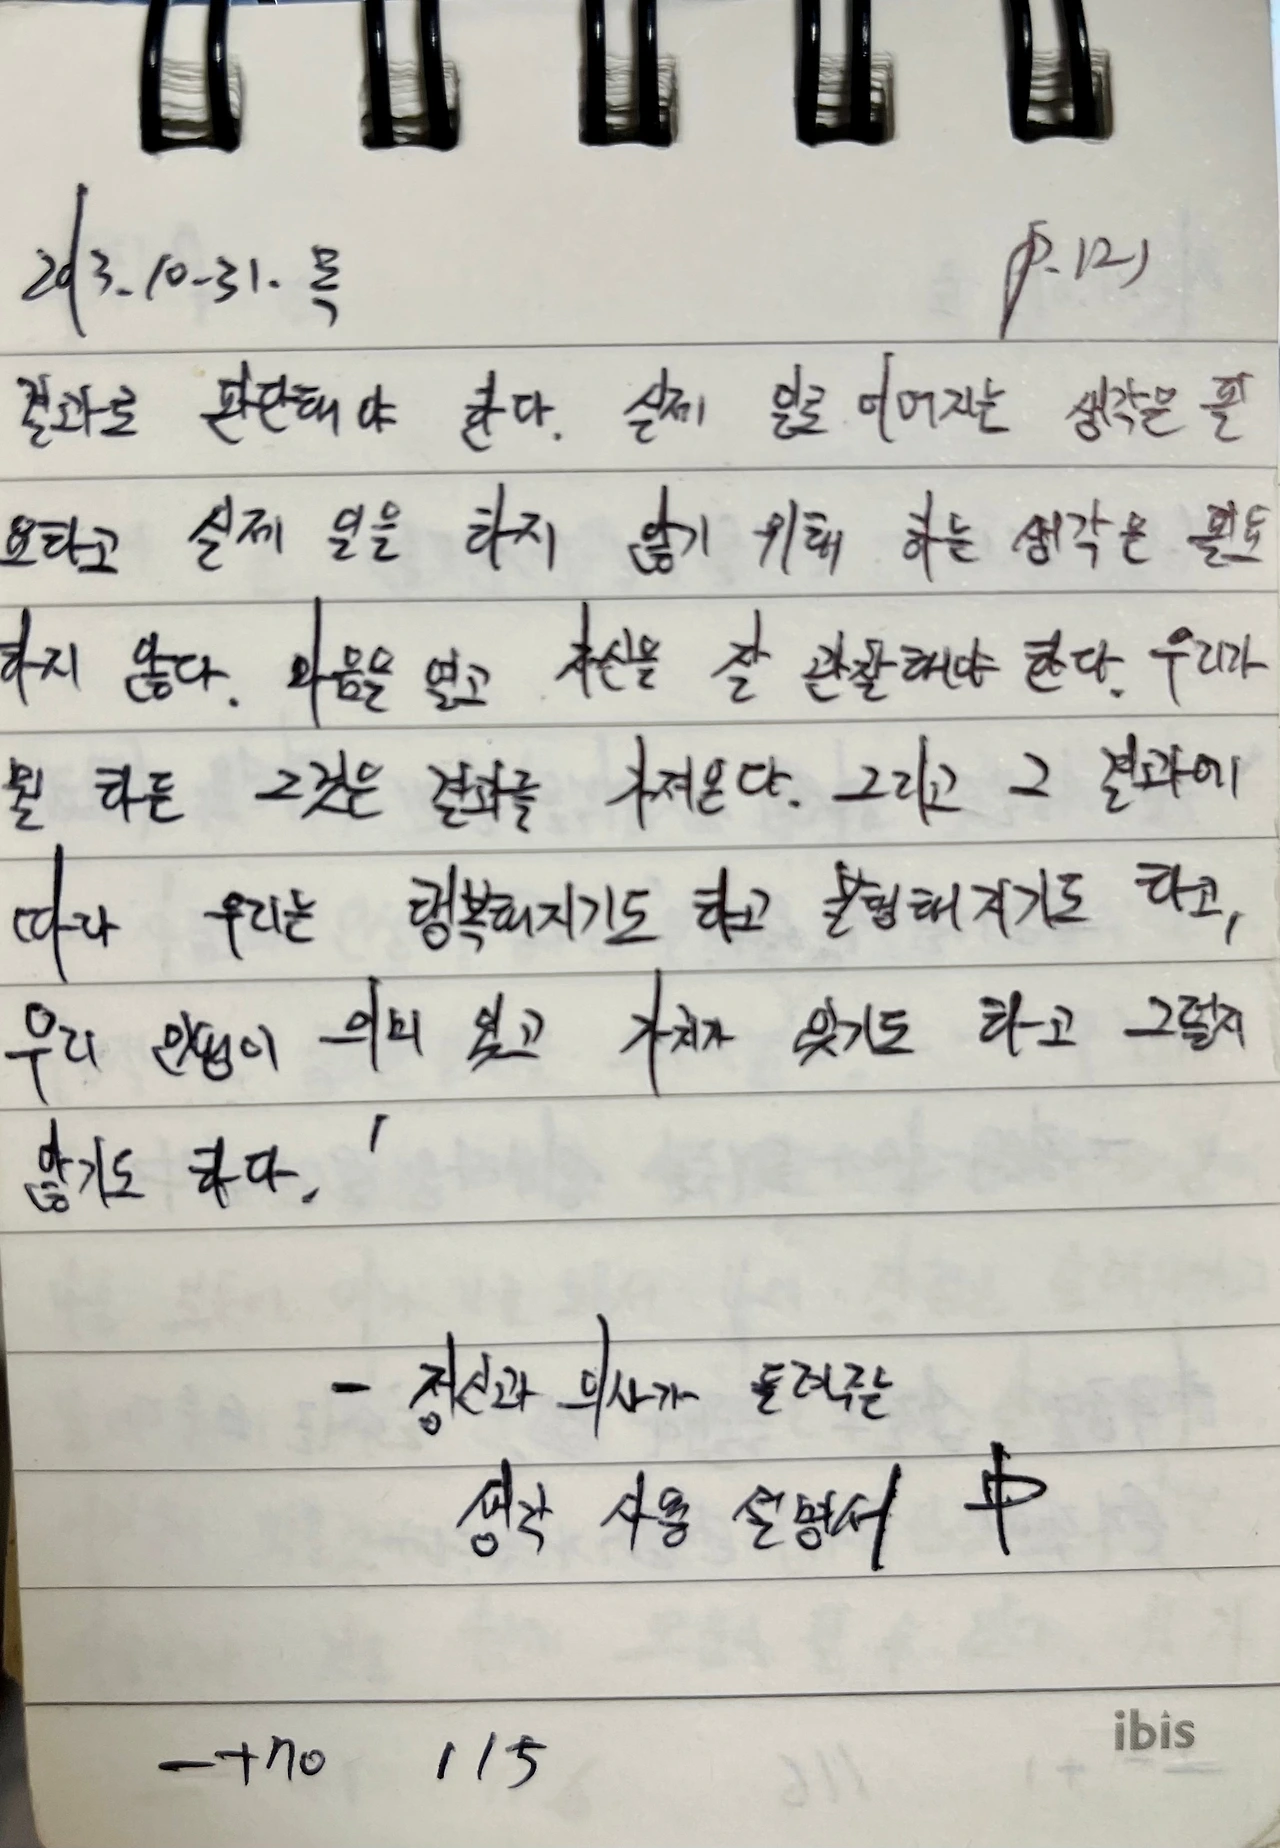 2013.10-31. 목
p.121
결과로 판단해야 한다. 실제 일로 이어지는 생각은 필
요하고 실제 일을 하지 않기 위해 하는 생각은 필요
하지 않다. 마음을 열고 자신을 잘 관찰해야 한다. 우리가
뭘 하든 그것은 결과를 가져온다. 그리고 그 결과에
따라 우리는 행복해지기도 하고 불행해지기도 하고,
우리 인생이 의미 있고 가치가 있기도 하고 그렇지
않기도 하다.
- 정신과 의사가 들려주는
생각 사용 설명서 中
ibis
115